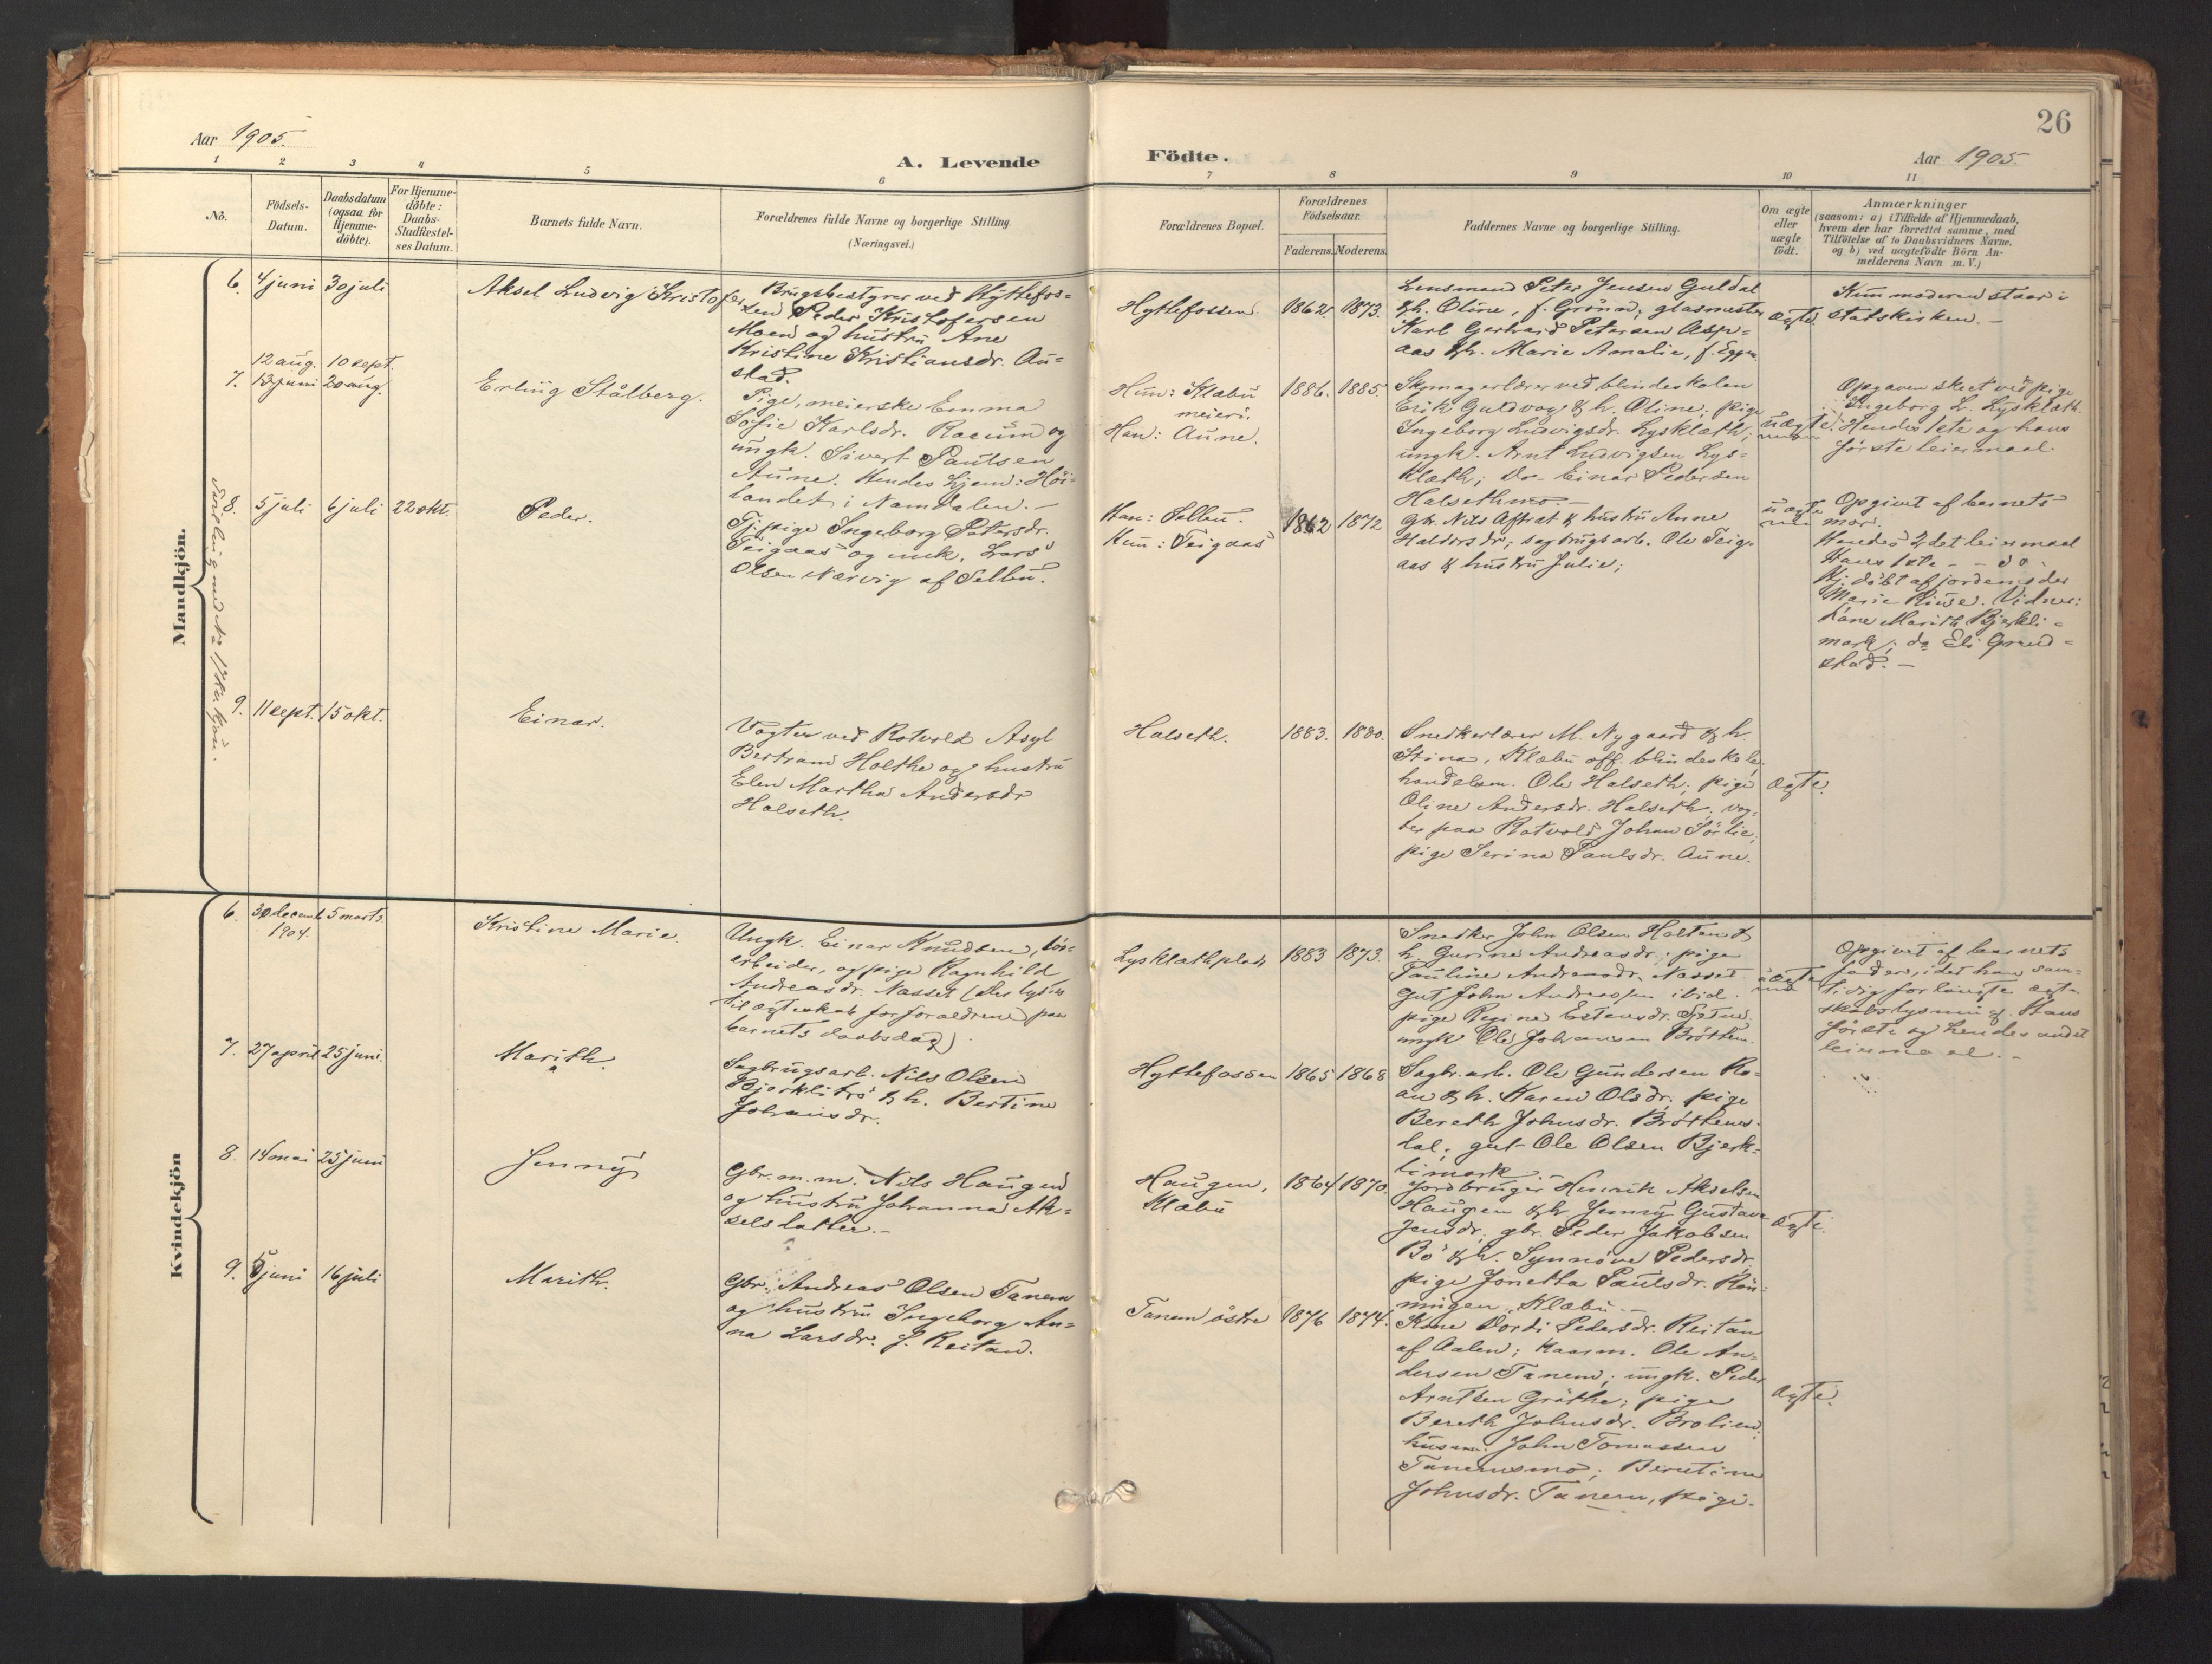 26
Aar 1905.
A. Levende
Födte.
Aar 1905.
1 2 3 4 5 6 7 8 9 10 11
No.
Födsels-
Datum.
Daabsdatum
(ogsaa for
Hjemme-
döbte).
For Hjemme-
döbte:
Daabs-
Stadfæstel-
ses Datum.
Barnets fulde Navn.
Forældrenes fulde Navne og borgerlige Stilling.
(Næringsvei.)
Forældrenes Bopæl.
Forældrenes
Födselsaar.
Faderens. Moderens.
Faddernes Navne og borgerlige Stilling.
Om ægte
eller
uægte
födt.
Anmærkninger
(saasom: a) i Tilfælde af Hjemmedaab,
hvem der har forrettet samme, med
Tilföielse af to Daabsvidners Navne.
og b) ved uægtefödte Börn An-
melderens Navn m. V.)
Mandkjön.
6. 4 juni 30 juli
Aksel Ludvig Kristofer
Brugsbestyrer ved Hyttefos-
sen Peder Kristofersen
Moen og hustru Ane
Kristine Kristiansdr. Au-
stad.
Hyttefossen. 1862 1873.
Lensmand Peter Jensen Guldal
& h. Oline, f. Grönn; glasmester
Karl Gerhard Petersen Asp-
aas & h. Marie Amalie, f. Eggen
ægte.
Kun moderen staar i
statskirken.-
12 aug. 10 sept.
7. 13 juni 20 aug.
Erling Stålberg.
Pige, meierske Emma
Sofie Karlsdr. Raaum og
ungk. Sivert Paulsen
Aune. Hendes hjem: Höi-
landet i Namdalen.-
Hun: Klæbu
meieri.
Han: Aune.
1886. 1885.
Skomagerlærer ved blindeskolen
Erik Guldvog & h. Oline; pige
Ingeborg Ludvigsdr. Lysklæth;
ungk. Arnt Ludvigsen Lys-
klæth; Do- Einar Pedersen
Halsethmo-
uægte.
Opgaven skeet ved pige
Ingeborg L. Lysklæth.
Hendes 1ste og hans
første leiermaal.
8. 5 juli 6 juli 22 okt.
Peder.
Tj. pige Ingeborg Petersdr.
Teigaas og enk. Lars
Olsen Nærvig af Selbu.
Han: Selbu.
Hun: Teigaas
1862 1872
Gbr. Nils Aftrat & hustru Anne
Haldorsdr; sagbrugsarb. Ole Teig-
aas & hustru Julie;
uægte
Opgivet af barnets
mor.
Hendes 2det leiermaal
Hans 1ste - - do -
Hj. döbt af jordemoder
Marie Kiuse. Vidner:
Kone Marith Bjerkli-
mark; do Eli Grend-
stad.-
9. 11 sept. 15 okt.
Einar.
Vogter ved Rotvold Asyl
Bertrand Holthe og hustru
Elen Martha Andersdr
Halseth.
Halseth. 1883. 1880.
Snedkerlærer M. Nygaard & h.
Stina, Klæbu off. blindeskole;
handelsm. Ole Halseth; pige
Oline Andersdr. Halseth; vog-
ter paa Rotvold Johan Sörlie;
pige Serina Paulsdr. Aune.
ægte.
Kvindekjön
6. 30 decemb. 5 marts.
1904.
Kristine Marie.
Ungk. Einar Knudsen, løs-
arbeider, og pige Ragnhild
Andreasdr. Nasset (der lyses
til ægteskab for forældrene paa
barnets daabsdag).
Lysklæthplads 1883 1873.
Snedker John Olsen Holten &
h. Gurine Andreasdr; pige
Pauline Andreasdr. Nasset
Gut John Andreassen ibid.
pige Regine Estensdr. Sætne.
ungk Ole Johansen Bröttem.
uægte
Opgivet af barnets
fadere, idet han sam-
tidig forlangte ægte-
skabslysning. Hans
første og hendes andet
leiermaal.-
7. 27 april 25 juni.
Marith.
Sagbrugsarb. Nils Olsen
Bjerklitrö & h. Bertine
Johansdr.
Hyttefossen 1865 1868
Sagbr. arb. Ole Gundersen Ro-
an & h. Karen Olsdr; pige
Bereth Johnsdr. Bröttems-
dal; gut Ole Olsen Bjerk-
limark.
8. 14 mai 25 juni
Jenny
Gbr. m.m. Nils Haugen
og hustru Johanna Ak-
selsdatter.-
Haugen,
Klæbu
1864 1870.
Jordbruger Henrik Akselsen
Haugen & h. Jenny Gustava
Jensdr; gbr. Peder Jakobsen
Bö & h. Synnöve Pedersdr,
pige Jonetta Paulsdr. Rön-
ningen, Klæbu.-
ægte.
9. 5 juni 16 juli
Marith.
Gbr. Andreas Olsen Tanem
og hustru Ingeborg An-
na Larsdr. f. Reitan.
Tanem östre 1876 1874.
Kone Dordi Pedersdr. Reitan
af Aalen; kaarm. Ole An-
dersen Tanem; ungk. Peder
Arntsen Gröthe; pige
Bereth Johnsdr. Brolien;
husm. John Tomassen
Tanemsmo; Berntine
Johnsdr. Tanem, pige.
ægte.